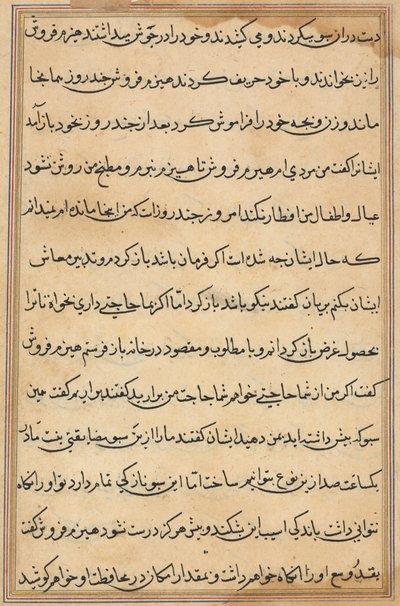 دست دراز سو میکردند و می کشیدند و خود را در جوش میداشتند هیزم فروش
را نیز بخواندند و با خود حریف کردند هیزم فروش چند روز بما بخا
ماند و زن و بچه خود را فراموش کرد بعد از چند روز بخود باز آمد
ایشانرا گفت من مردی ام هیزم فروش تا هیزم نبرم و مطبخ من روشن نشود
عیال و اطفال من افطار نکند امروز چند روزست که من اینجا مانده ام نمیدانم
که حال ایشان چه شده است اگر فرمان باشد باز کردم و تدبیر معاش
ایشان بکنم پریان گفتند نیکو باشد باز کرد اما اگر بما حاجتی داری بخواه تا ترا
بحصول غرض باز کردانیم و با مطلوب و مقصود در خانه باز فرستم هیزم فروش
گفت اگر من از شما حاجتی خواهم شما حاجت من برارید گفتند براریم گفت همین
سبو که پیش داشته اید بمن دهید ایشان گفتند ما را ازین سبو مضایقتی نیست ما در
یکساعت صد ازین نوع بتوانیم ساخت اما این سبو نازکی تمام دارد تو او را نکاه
نتوانی داشت باندکی آسیب این بشکند و بیش هرگز درست نشود هیزم فروش گفت
بقدر وسع او را نکاه خواهم داشت و بمقدار امکان در محافظت او خواهم کوشید